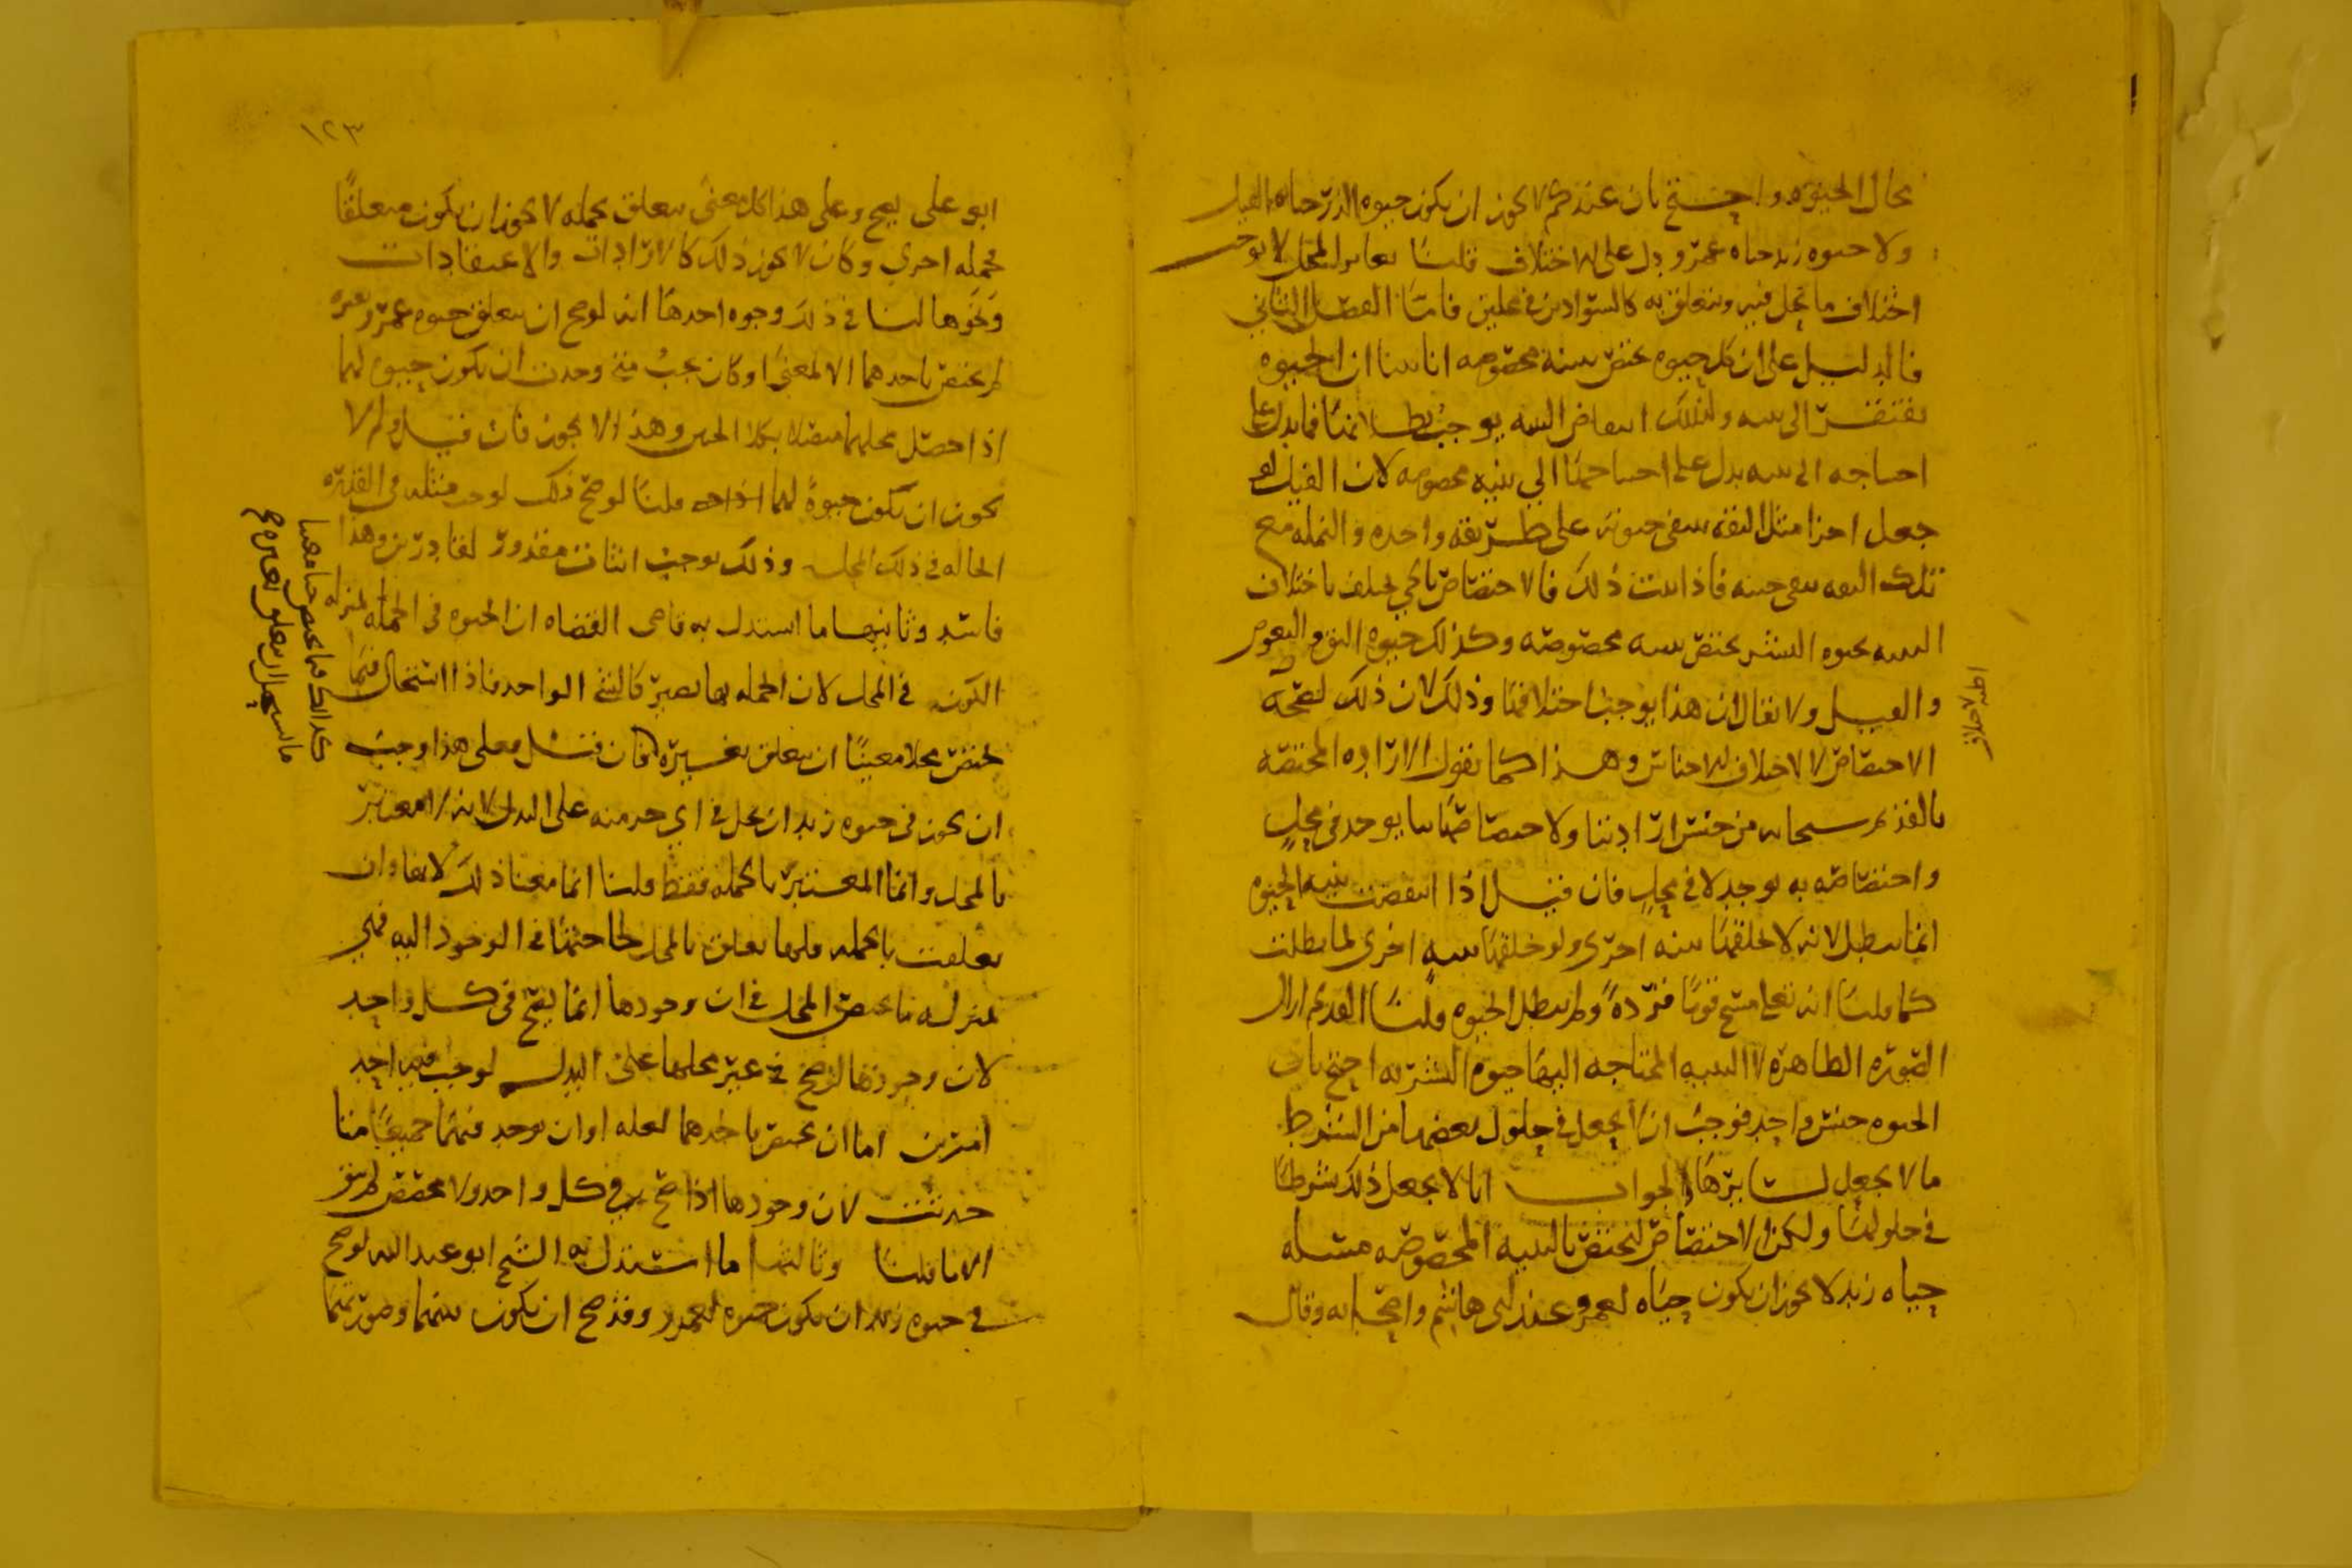 بحال الحيوه واحتج بان عندكم لا يجوز ان يكون حيوه الذر حياه الفيل
ولا حيوه زيد حياه عمرو ودل على الاختلاف قلنا تغاير المحل لا يوجب
اختلاف ما يحل فيه ويتعلق به كالسوادين في محلين فاما الفصل الثاني
فالدليل على ان كل حيوه تختص ببنية مخصوصه انا بينا ان الحيوه
تفتقر الى بنيه ولذلك انتقاض البنيه يوجب بطلانها فما يدل على
احتياجه الى بنيه يدل على احتياجها الى بنيه مخصوصه لان الفيل لو
جعل اجزا مثل البقه ينفي حيوته على طريقه واحده والنمله مع
تلك البنيه يبقى حيه فاذا ثبت ذلك فالاختصاص بالحي يختلف باختلاف
البنيه فحيوه البشر يختص ببنيه مخصوصه وكذلك حيوه البق والبعوض
والفيل ولا يقال ان هذا يوجب اختلافها وذلك لان ذلك لصحة
الاختصاص لا لاختلاف الاجناس وهذا كما نقول الارادة المختصة
بالقديم سبحانه من جنس ارادتنا ولاختصاصها بنا يوجد في محل
واختصاصه به يوجد لا في محل فان قيل اذا انتقضت بنيه الحيوه
انما يبطل لانه لا يخلفها بنيه اخرى ولو خلفها بنيه اخرى لما بطلت
كما قلنا انه تعلى مسخ قومًا قردةً ولم يبطل الحيوه قلنا القديم ازال
الصوره الظاهره لا البنيه المحتاجه اليها حيوه البشريه احتج بان
الحيوه جنس واحد فوجب ان لا يجعل في حلول بعضها من الشرط
ما لا يجعل لسايرها والجواب انا لا نجعل ذلك شرطا
في حلولها ولكن الاختصاص لتختص بالبنيه المخصوصه مسئله
حياه زيد لا يجوز ان يكون حياه لعمرو عند ابي هاشم واصحابه وقال
١٢٣
ابو علي يصح وعلى هذا كل معنى يتعلق بجمله لا يجوز ان يكون متعلقًا
بجمله اخرى وكان لا يجوز ذلك كالارادات والاعتقادات
ونحوها لنا في ذلك وجوه احدها انه لو صح ان يتعلق حيوه عمرو بغيره
لم يختص باحدهما الا لمعنى او كان يجب متى وجدت ان يكون حيوه لهما
اذا حصل محلهما متصلا بكلا الحيين وهذا لا يجوز فان قيل ولم لا
يجوز ان يكون حيوةً لهما قلنا لو صح ذلك لوجب مثله في القدره
الحاله في ذلك المحل وذلك يوجب اثبات مقدور لقادرين وهذا
فاسد وثانيها ما استدل به قاضي القضاه ان الحيوه في الجمله بمنزله
الكون في المحل لان الجمله بها يصير كالشي الواحد فاذا استحال فيما
يختص محلا معينًا ان يتعلق بغيره فان قيل فعلى هذا وجب
ان يجوز في حيوه زيد ان يحل في اي جزء منه على البدل لانه لا معتبر
بالمحل وانما المعتبر بالجمله فقط قلنا انما معنا ذلك لانها وان
تعلقت بالجمله فلها تعلق بالمحل لحاجتها في الوجود اليه فهي
بمنزله ما يختص المحل في ان وجودها انما يصح في كل واحد
لان وجودها لو صح في غير محلها على البدل لوجب احد
امرين اما ان يختص باحدهما لعله او ان يوجد فيهما جميعًا متى
حدثت لان وجودها اذا صح في كل واحد ولا مخصص لم يبق
الا ما قلنا وثالثها ما استدل به الشيخ ابو عبد الله لو صح
في حيوه زيد ان يكون حيوه لعمرو وقد صح ان يكون بينهما وصورتهما
كذلك فيما يختص حيا معينا
ما يستحيل ان يتعلق بغيره صح